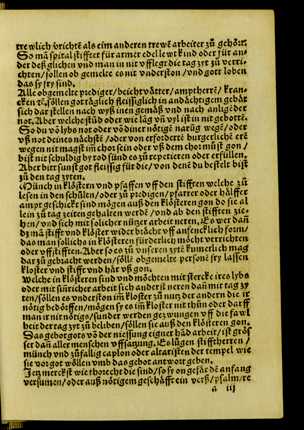 trewlich bricht als eim anderen trewē arbeiter zů gehört.
So mā spital stifftet für armer edel lewt kind oder für an-
der deßglichen vnd man in nit vfflegt die tag zyt zů verri-
chten/sollen ob gemelte es nit vnderston/vnd gott loben
das sy fry sind.
Alle obgemelte pediger/beichtvätter/ampthere/kran-
cken söllen gottäglich fleissiglich in andächtigem gebät
sich dar stellen nach wyß inen gemäß vnd nach anligēder
not. Aber welche stüd oder wie läg vn vyl ist in nit gebottē.
So du vō lybs not oder vō diner nötigē narūg wegē/oder
vß not deines nächstē/oder von erforderte burgerliche
wegen nit magst im chor sein oder vß dem chor must gon/
bist nit schuldig by tod sünd es zů repetieren oder erfüllen.
Aber bitt sunst got fleissig für die/von denē du bestelt bist
zů den tag zyten.
Münch in klöstern vnd pfaffen vff den stifften welche zů
lesen in den schůlen/oder zů predigen/pfarrer oder hälffer
ampt geschickt sind mögen auß den klösteren gon do sie al
lein zů tag zeiten gehalten werdē/vnd ab den stifften zie-
hen/vnd sich mit solicher nūtzer arbeit neren, Es wer dan
dz mā stifft vnd klöster wider brächt vff anfencklich form/
das man sollichs in klösteren fürderlich möcht verrichten
oder vff stifften. Aber so es zů vnseren zytē kumerlich mag
dar zů gebracht werden/söllē obgemelte personē fry lassen
kloster vnd stifft vnd här vß gon.
Welche in klösteren sind vnd möchten mit stercke ires lybs
oder mit sunst der arbeit sich andersst neren dan mit tag zy
ten/söllen es vnderston im kloster zů nutz der andern die ir
nötig bedörffen/mögen sy es im kloster nit thůn oder darff
man ir nit nötigs/sunder gezwungen werden vff die fawl
heit der tag zyt zů belyben/söllen sie auß den klösteren gon.
Das gebot gots vō der niessung eigner häd arbeit/ist gröf
ser dan aller menschen vffsatzung. Es lügen stifftherren/
münch vnd zůfallig caplon oder altaristen der tempel wie
sie vor got wöllen vmb das gebot antwurt geben.
Jtem merckt wie thorecht die sind/so sy on gefär dē anfang
versumen/oder auß nötigem geschäfft ein verß/psalm/re
a iij